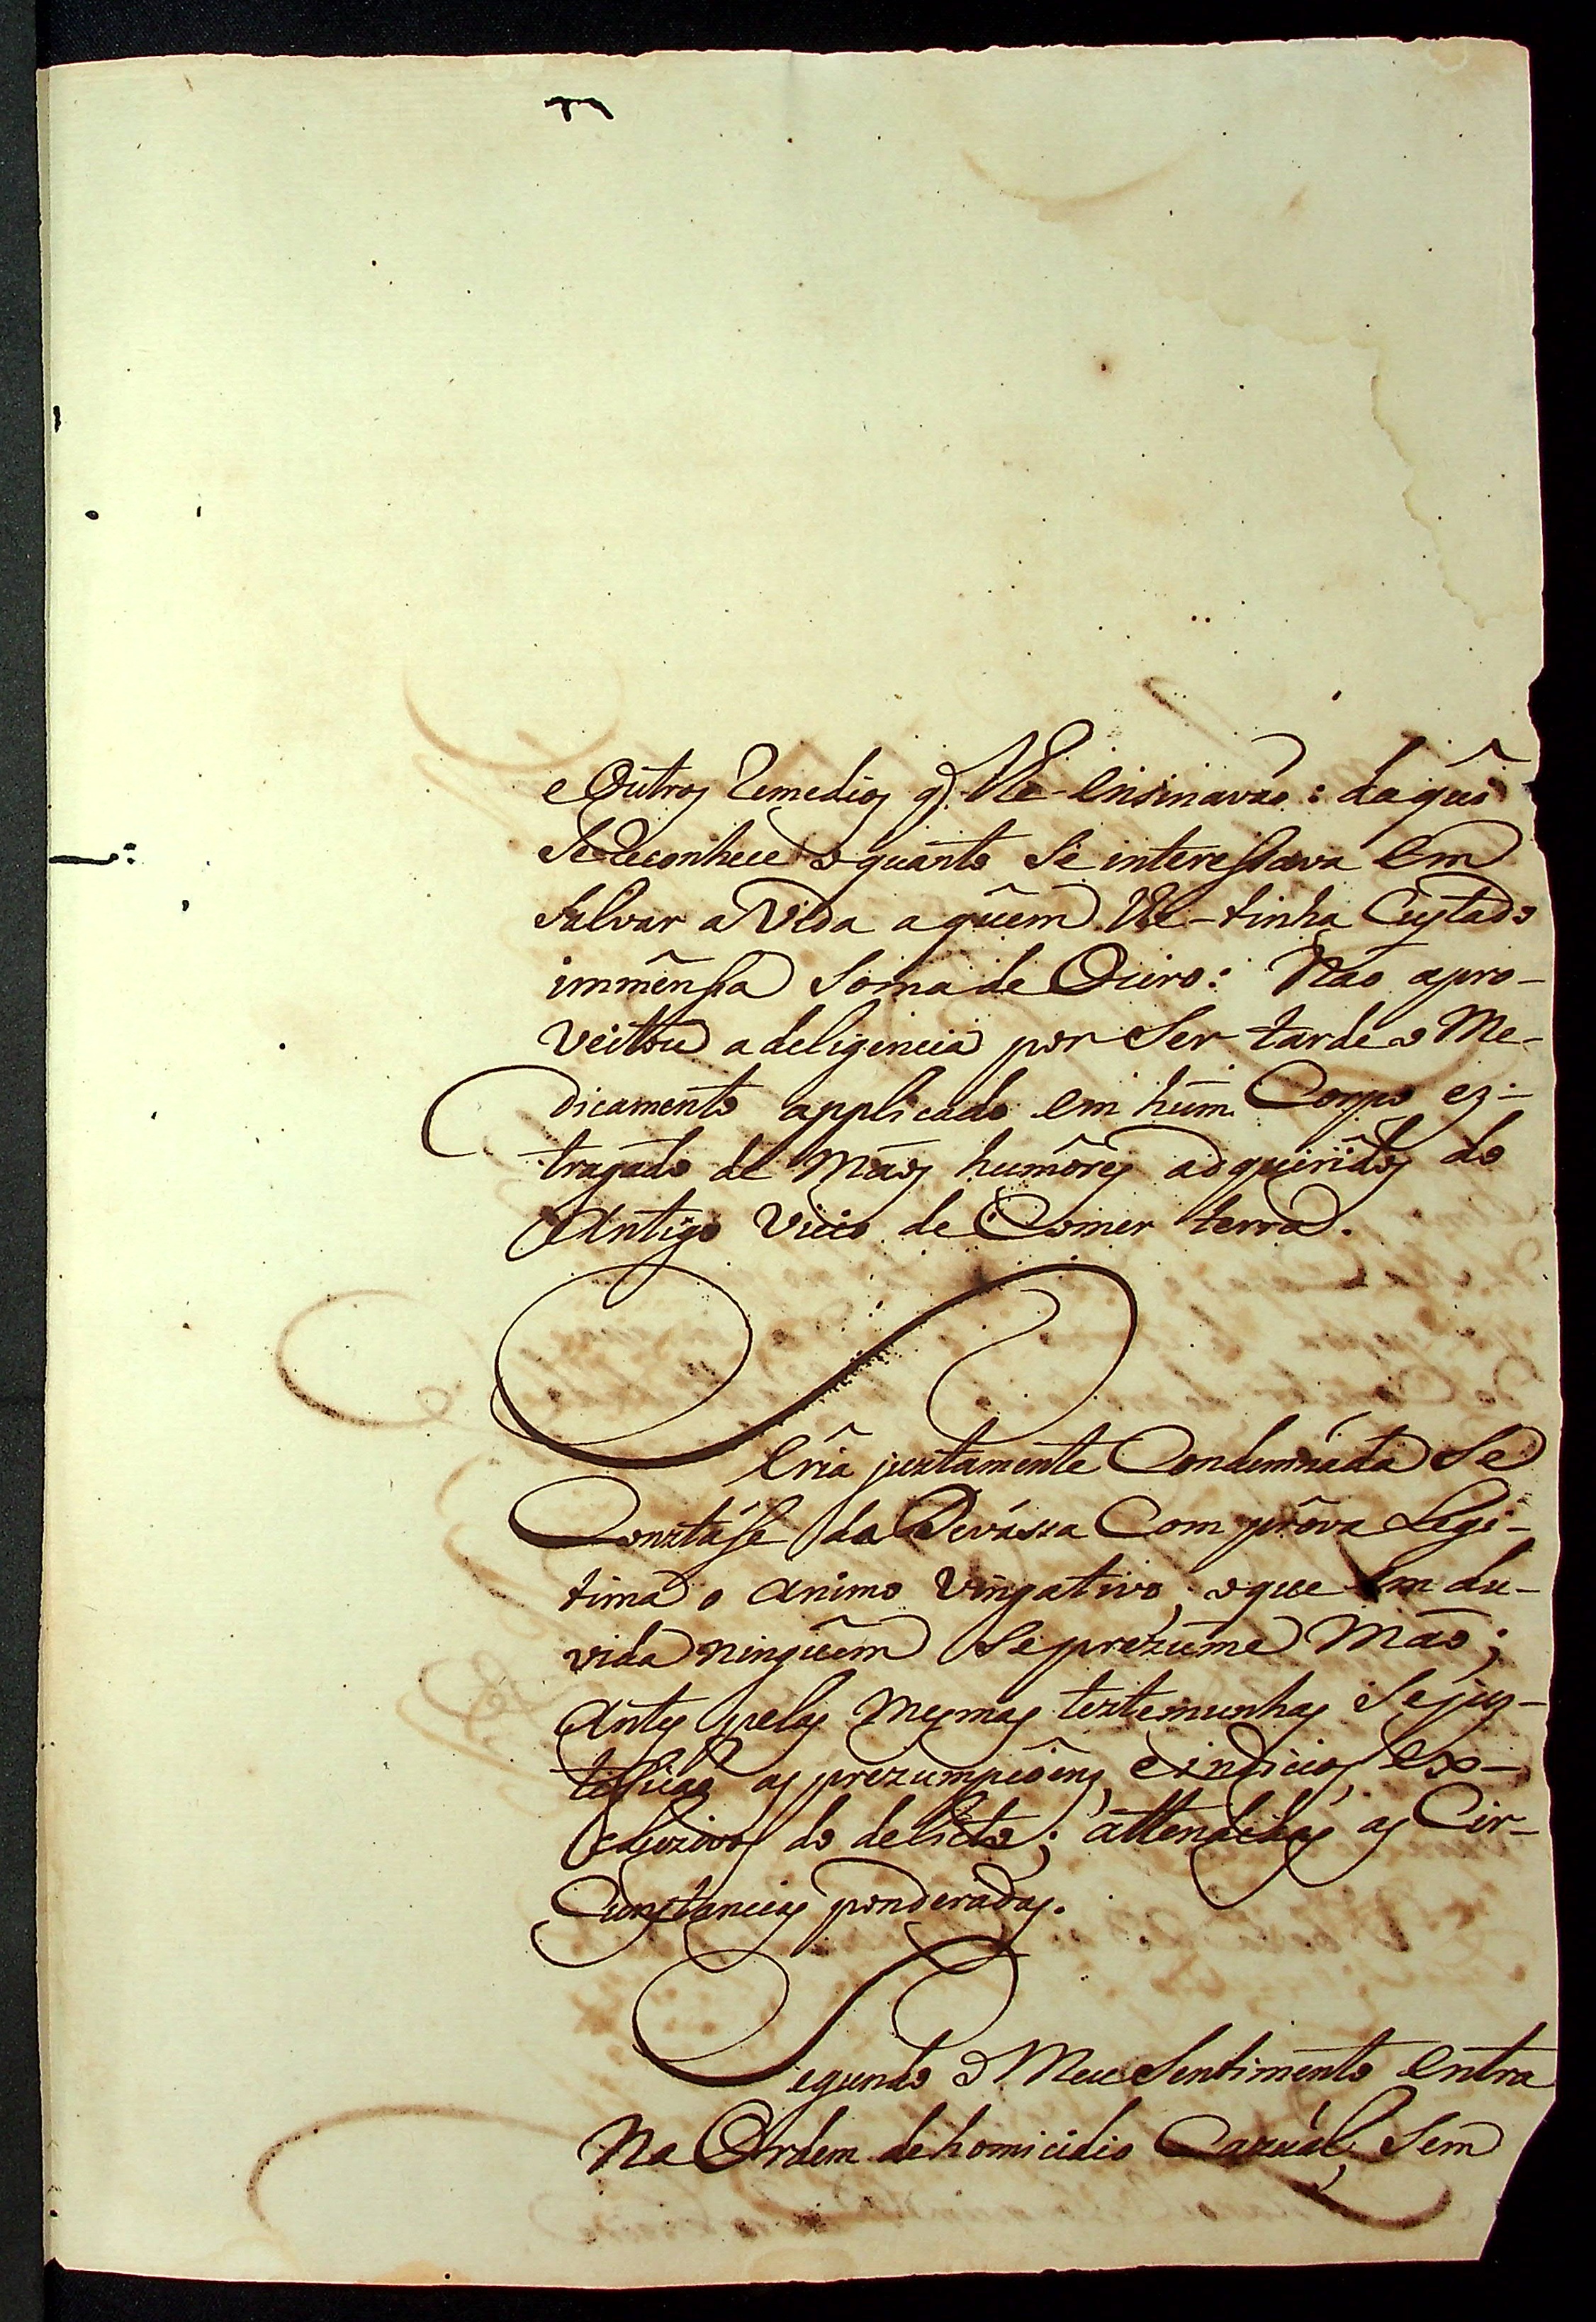 e Outros Remedios q̃ lhe-ensinavão: daqûi
Se Reconhece o quanto Se interessava em
Salvar a Vida aquêm lhe-tinha Custado
immênsa Soma de Ouro: Não apro-
Veitou a deligencia por Ser tarde o Me-
dicamento applicado em hum Corpo es-
tragado de Máos humôres adquirîdos do
Antigo Vicio de Comer terra.
Serîa justamente Condemnáda Se
Constáse da Devássa Com prôva Legi-
tima o animo Vingativo, o que em du-
vida ninguêm Se prezûme Máo;
Antes pelas Mesmas testemunhas Se jus-
tificão as prezumpçôens, e indicios ex-
cluzivos do delicto; attendidas as Cir-
Cunstancias ponderadas.
Segundo o Meu Sentimento entra
Na Ordem de homicidio Cazuál, Sem